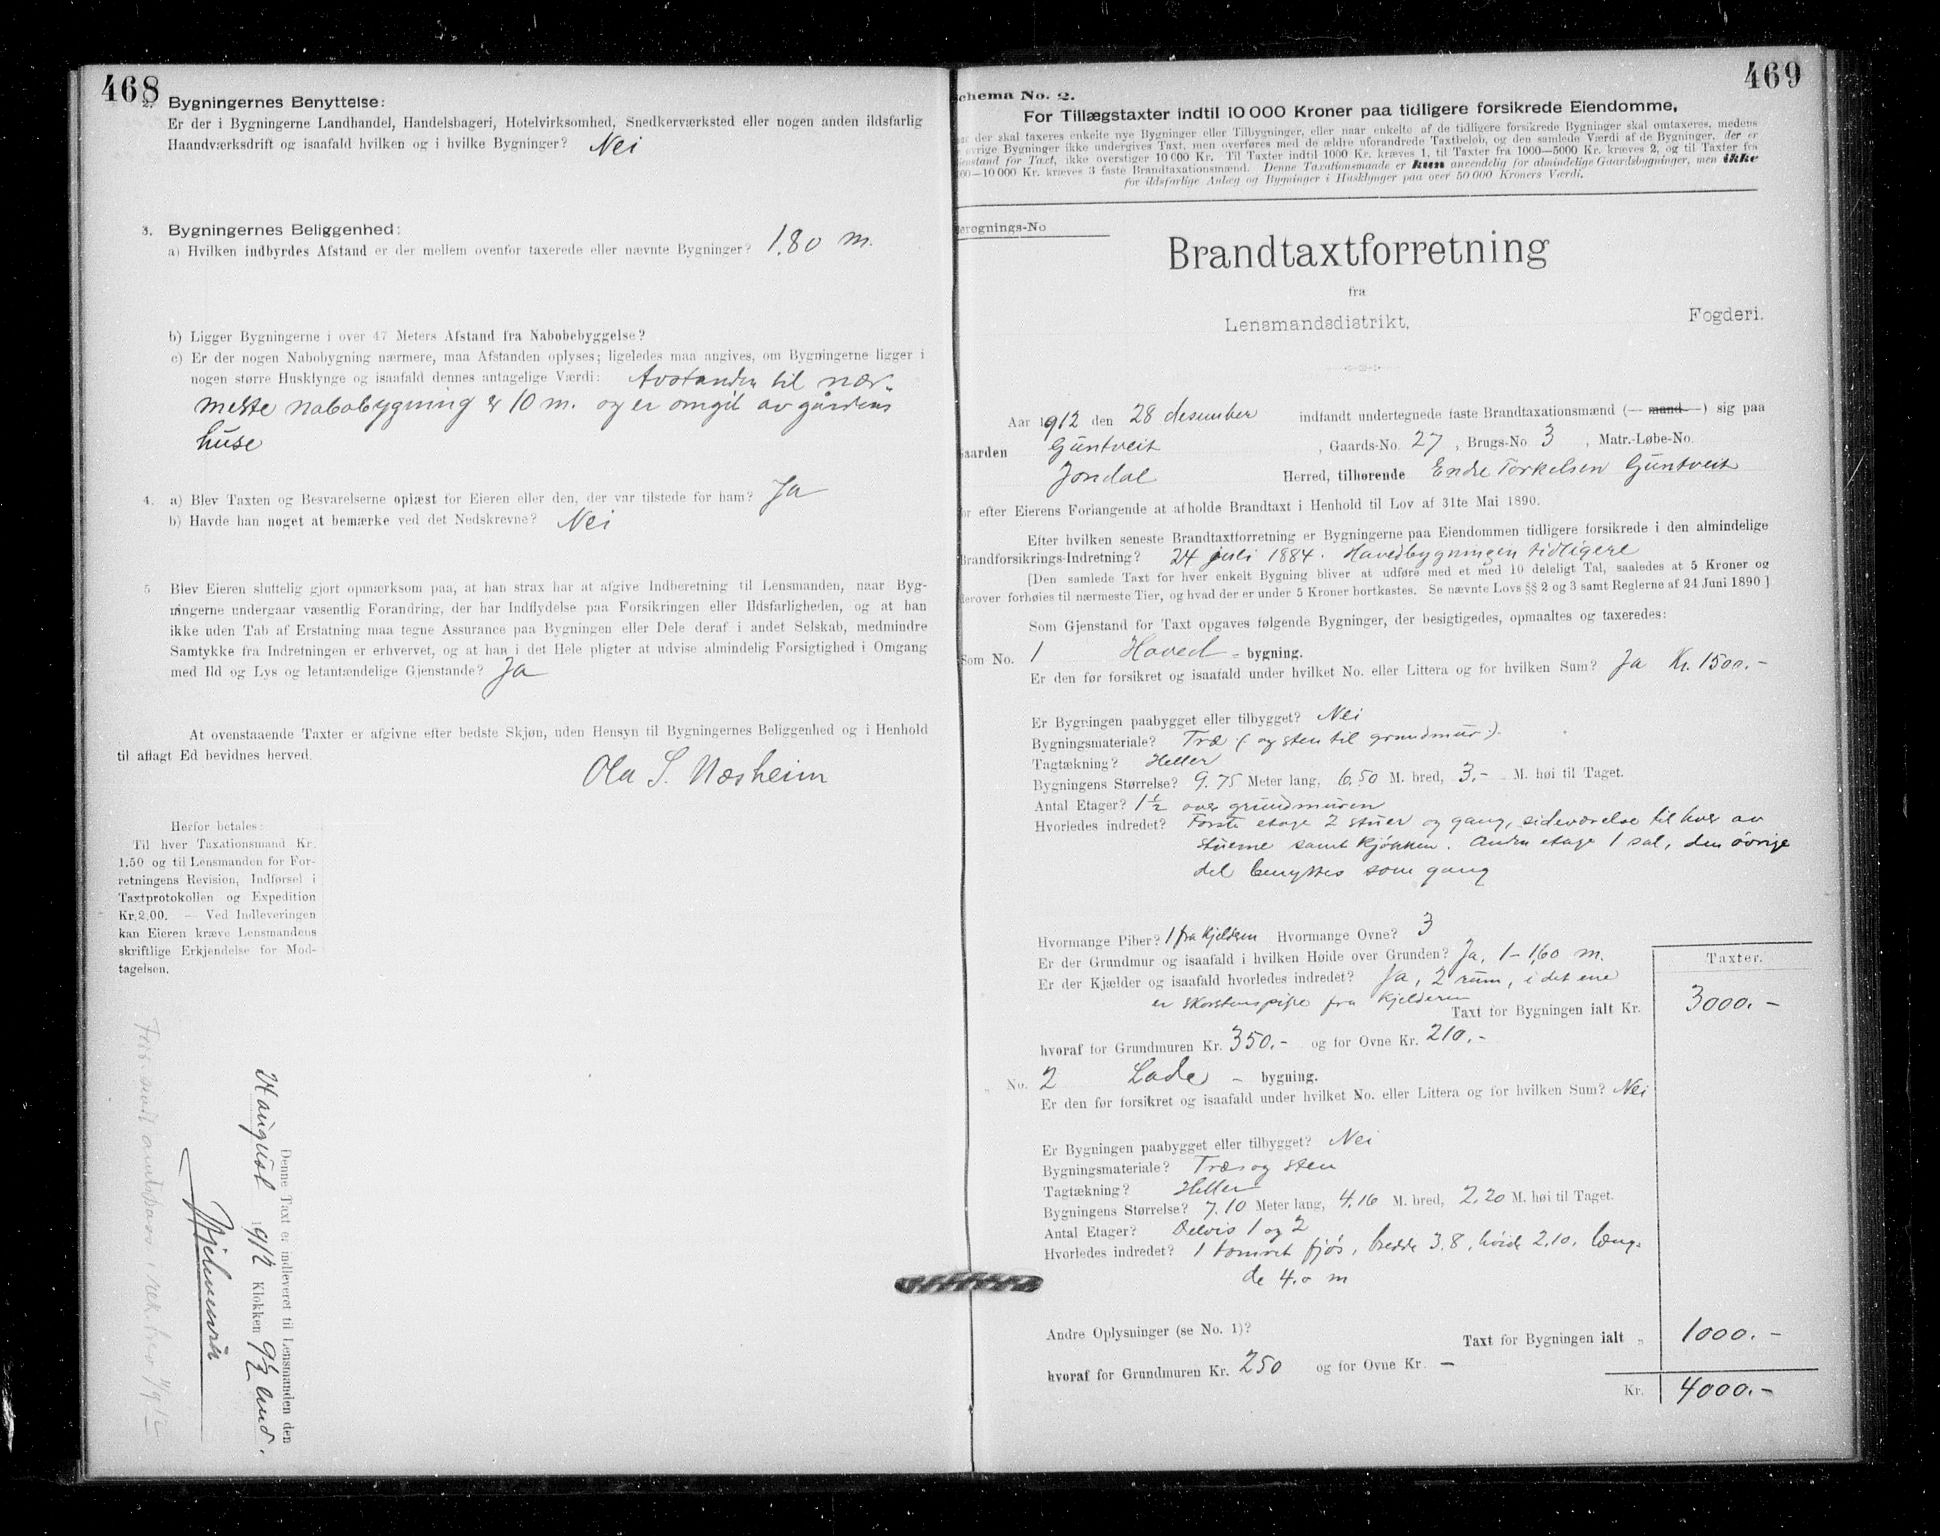 468
2. Bygningernes Benyttelse:
Er der i Bygningerne Landhandel, Handelsbageri, Hotelvirksomhed, Snedkerværksted eller nogen anden ildsfarlig
Haandværksdrift og isaafald hvilken og i hvilke Bygninger? Nei
3. Bygningernes Beliggenhed:
a) Hvilken indbyrdes Afstand er der mellem ovenfor taxerede eller nævnte Bygninger? 1.80 m.
b) Ligger Bygningerne i over 47 Meters Afstand fra Nabobebyggelse?
c) Er der nogen Nabobygning nærmere, maa Afstanden oplyses; ligeledes maa angives, om Bygningerne ligger i
nogen større Husklynge og isaafald dennes antagelige Værdi: Avstanden til nær-
meste nabobygning er 10 m. og er omgit av gårdens
huse
4. a) Blev Taxten og Besvarelserne oplæst for Eieren eller den, der var tilstede for ham? Ja
b) Havde han noget at bemærke ved det Nedskrevne? Nei
5 Blev Eieren sluttelig gjort opmærksom paa, at han strax har at afgive Indberetning til Lensmanden, naar Byg-
ningerne undergaar væsentlig Forandring, der har Indflydelse paa Forsikringen eller Ildsfarligheden, og at han
ikke uden Tab af Erstatning maa tegne Assurance paa Bygningen eller Dele deraf i andet Selskab, medmindre
Samtykke fra Indretningen er erhvervet, og at han i det Hele pligter at udvise almindelig Forsigtighed i Omgang
med Ild og Lys og letantændelige Gjenstande? Ja
At ovenstaaende Taxter er afgivne efter bedste Skjøn, uden Hensyn til Bygningernes Beliggenhed og i Henhold
til aflagt Ed bevidnes herved.
Ola S. Næsheim
Herfor betales:
Til hver Taxationsmand Kr.
1,50 og til Lensmanden for For-
retningens Revision, Indførsel i
Taxtprotokollen og Expedition
Kr. 2.00. — Ved Indleveringen
kan Eieren kræve Lensmandens
skriftlige Erkjendelse for Mod-
tagelsen.
Denne Taxt er indleveret til Lensmanden den
1912 Klokken 9½
469
chema No. 2.
For Tillægstaxter indtil 10 000 Kroner paa tidligere forsikrede Eiendomme,
der skal taxeres enkelte nye Bygninger eller Tilbygninger, eller naar enkelte af de tidligere forsikrede Bygninger skal omtaxeres, medens
øvrige Bygninger ikke undergives Taxt, men overføres med de ældre uforandrede Taxtbeløb, og den samlede Værdi af de Bygninger, der er
jenstand for Taxt, ikke overstiger 10 000 Kr. Til Taxter indtil 1000 Kr. kræves 1, til Taxter fra 1000—5000 Kr. kræves 2, og til Taxter fra
00—10 000 Kr. kræves 3 faste Brandtaxationsmænd. Denne Taxationsmaade er kun anvendelig for almindelige Gaardsbygninger, men ikke
for ildsfarlige Anlæg og Bygninger i Husklynger paa over 50 000 Kroners Værdi.
eregnings-No
Brandtaxtforretning
fra
Lensmandsdistrikt, Fogderi.
Aar 1912 den 28 desember indfandt undertegnede faste Brandtaxationsmænd (— mand —) sig paa
aarden Guntveit , Gaards-No. 27 , Brugs-No 3 , Matr.-Løbe-No.
Jondal Herred, tilhørende Endre Torkelsen Guntveit
or efter Eierens Forlangende at afholde Brandtaxt i Henhold til Lov af 31te Mai 1890.
Efter hvilken seneste Brandtaxtforretning er Bygningerne paa Eiendommen tidligere forsikrede i den almindelige
Brandforsikrings-Indretning? 24 juli 1884. Hovedbygningen tidligere
[Den samlede Taxt for hver enkelt Bygning bliver at udføre med et med 10 deleligt Tal, saaledes at 5 Kroner og
derover forhøies til nærmeste Tier, og hvad der er under 5 Kroner bortkastes. Se nævnte Lovs §§ 2 og 3 samt Reglerne af 24 Juni 1890]
Som Gjenstand for Taxt opgaves følgende Bygninger, der besigtigedes, opmaaltes og taxeredes:
Som No. 1 Hoved - bygning.
Er den før forsikret og isaafald under hvilket No. eller Littera og for hvilken Sum? Ja Kr. 1500.-
Er Bygningen paabygget eller tilbygget? Nei
Bygningsmateriale? Træ (og sten til grundmur).
Tagtækning? Heller
Bygningens Størrelse? 9.75 Meter lang, 6.50 M. bred, 3.- M. høi til Taget.
Antal Etager? 1½ over grundmuren
Hvorledes indredet? Første etage 2 stuer og gang, sideværelse til hver av
stuerne samt kjøkken. Anden etage 1 sal, den øvrige
del benyttes som gang
Hvormange Piber? 1 fra kjelderen Hvormange Ovne? 3
Er der Grundmur og isaafald i hvilken Høide over Grunden? Ja, 1 - 1,60 m.
Er der Kjælder og isaafald hvorledes indredet? Ja, 2 rum, i det ene
er skorstenspipe fra kjelderen
Taxter.
Taxt for Bygningen ialt Kr. 3000.-
hvoraf for Grundmuren Kr. 350.- og for Ovne Kr. 210.-
No. 2 Lade - bygning.
Er den før forsikret og isaafald under hvilket No. eller Littera og for hvilken Sum? Nei
Er Bygningen paabygget eller tilbygget? Nei
Bygningsmateriale? Træ og sten
Tagtækning? Heller
Bygningens Størrelse? 7.10 Meter lang, 4.16 M. bred, 2.20 M. høi til Taget.
Antal Etager? Delvis 1 og 2
Hvorledes indredet? 1 tømret fjøs, bredde 3.8, høide 2.10, læng-
de 4.0 m
Andre Oplysninger (se No. 1)?
Taxt for Bygningen ialt „ 1000.-
hvoraf for Grundmuren Kr. 250 og for Ovne Kr. —
Kr. 4000.-